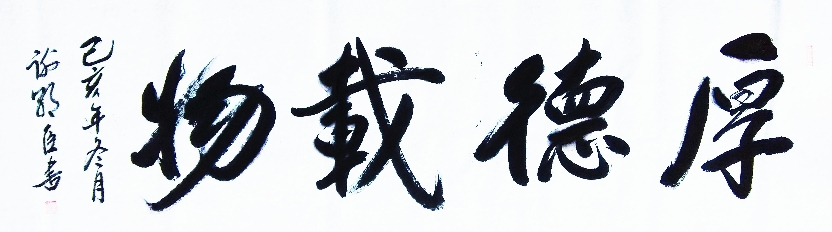 厚德載物
己亥年冬月
谢
臣書